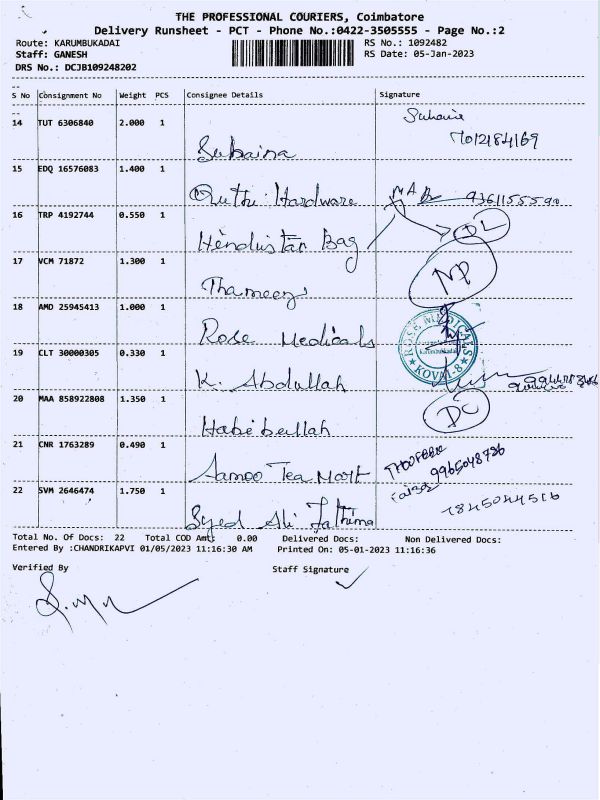 THE PROFESSIONAL COURIERS, Coimbatore
Delivery Runsheet - PCT - Phone No.:0422-3505555 - Page No.:2
Route: KARUMBUKADAI RS No.: 1092482
Staff: GANESH RS Date: 05-Jan-2023
DRS No.: DCJB109248202
S No Consignment No Weight PCS Consignee Details Signature
14 TUT 6306840 2.000 1 Suhaina
15 EDQ 16576083 1.400 1 Hardware
16 TRP 4192744 0.550 1 Hindustan Bag DL
17 VCM 71872 1.300 1 Thameez NP
18 AMD 25945413 1.000 1 Rose Medicals ROSE MEDICALS Karumbukadai KOVAI-8
19 CLT 30000305 0.330 1 K. Abdullah
20 MAA 858922808 1.350 1 Habibullah DC
21 CNR 1763289 0.490 1 Aamoo Tea Mart 9965048736
22 SVM 2646474 1.750 1 Syed Ali Fathima 7845044516
Total No. Of Docs: 22 Total COD Amt: 0.00 Delivered Docs: Non Delivered Docs:
Entered By :CHANDRIKAPVI 01/05/2023 11:16:30 AM Printed On: 05-01-2023 11:16:36
Verified By Staff Signature